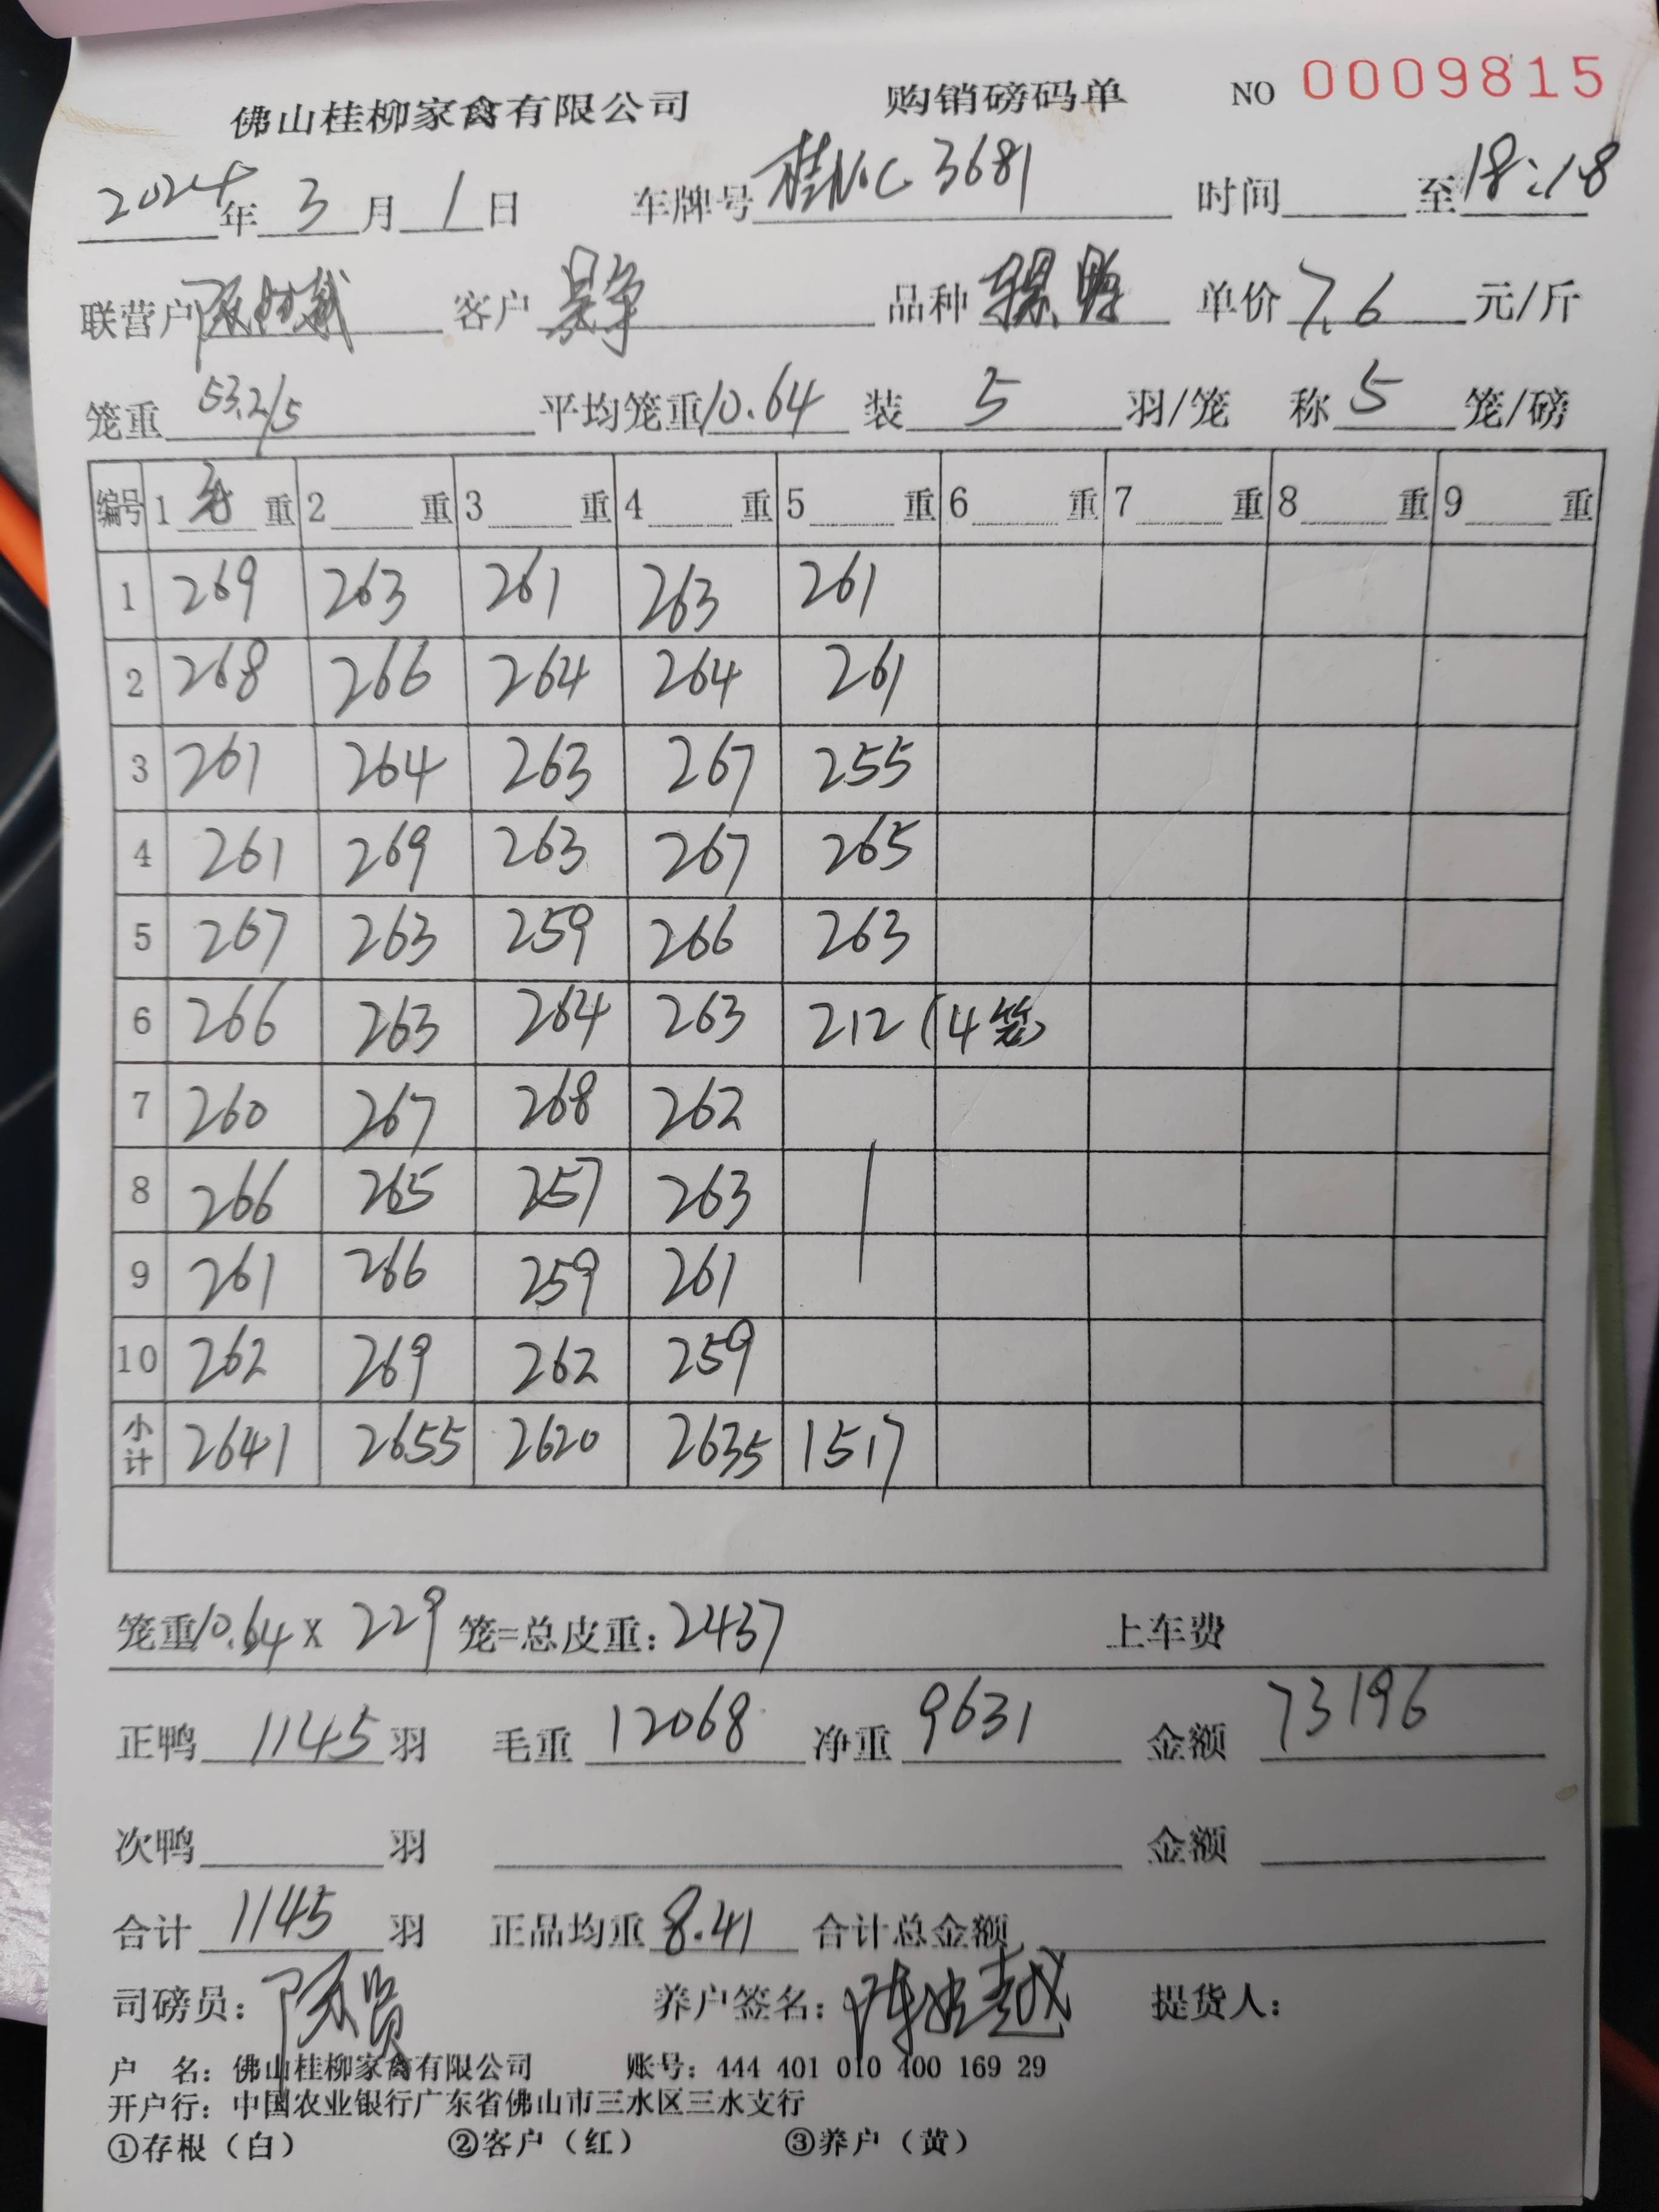 佛山桂柳家禽有限公司 购销磅码单 NO 0009815
2024年 3月 1日 车牌号 桂N.C 3681 时间 至18:18
联营户 客户 品种 单价 7.6 元/斤
笼重 53.2/5 平均笼重10.64 装 5 羽/笼 称 5 笼/磅
编号 1 毛 重 2 重 3 重 4 重 5 重 6 重 7 重 8 重 9 重
1 269 263 261 263 261
2 268 266 264 264 261
3 261 264 263 267 255
4 261 269 263 267 265
5 267 263 259 266 263
6 266 263 264 263 212 (4笼)
7 260 267 268 262
8 266 265 257 263
9 261 266 259 261
10 262 269 262 259
小计 2641 2655 2620 2635 1517
笼重10.64 X 229 笼=总皮重: 2437 上车费
正鸭 1145 羽 毛重 12068 净重 9631 金额 73196
次鸭 羽 金额
合计 1145 羽 正品均重 8.41 合计总金额
司磅员: 养户签名: 提货人:
户 名: 佛山桂柳家禽有限公司 账号: 444 401 010 400 169 29
开户行: 中国农业银行广东省佛山市三水区三水支行
①存根（白） ②客户（红） ③养户（黄）